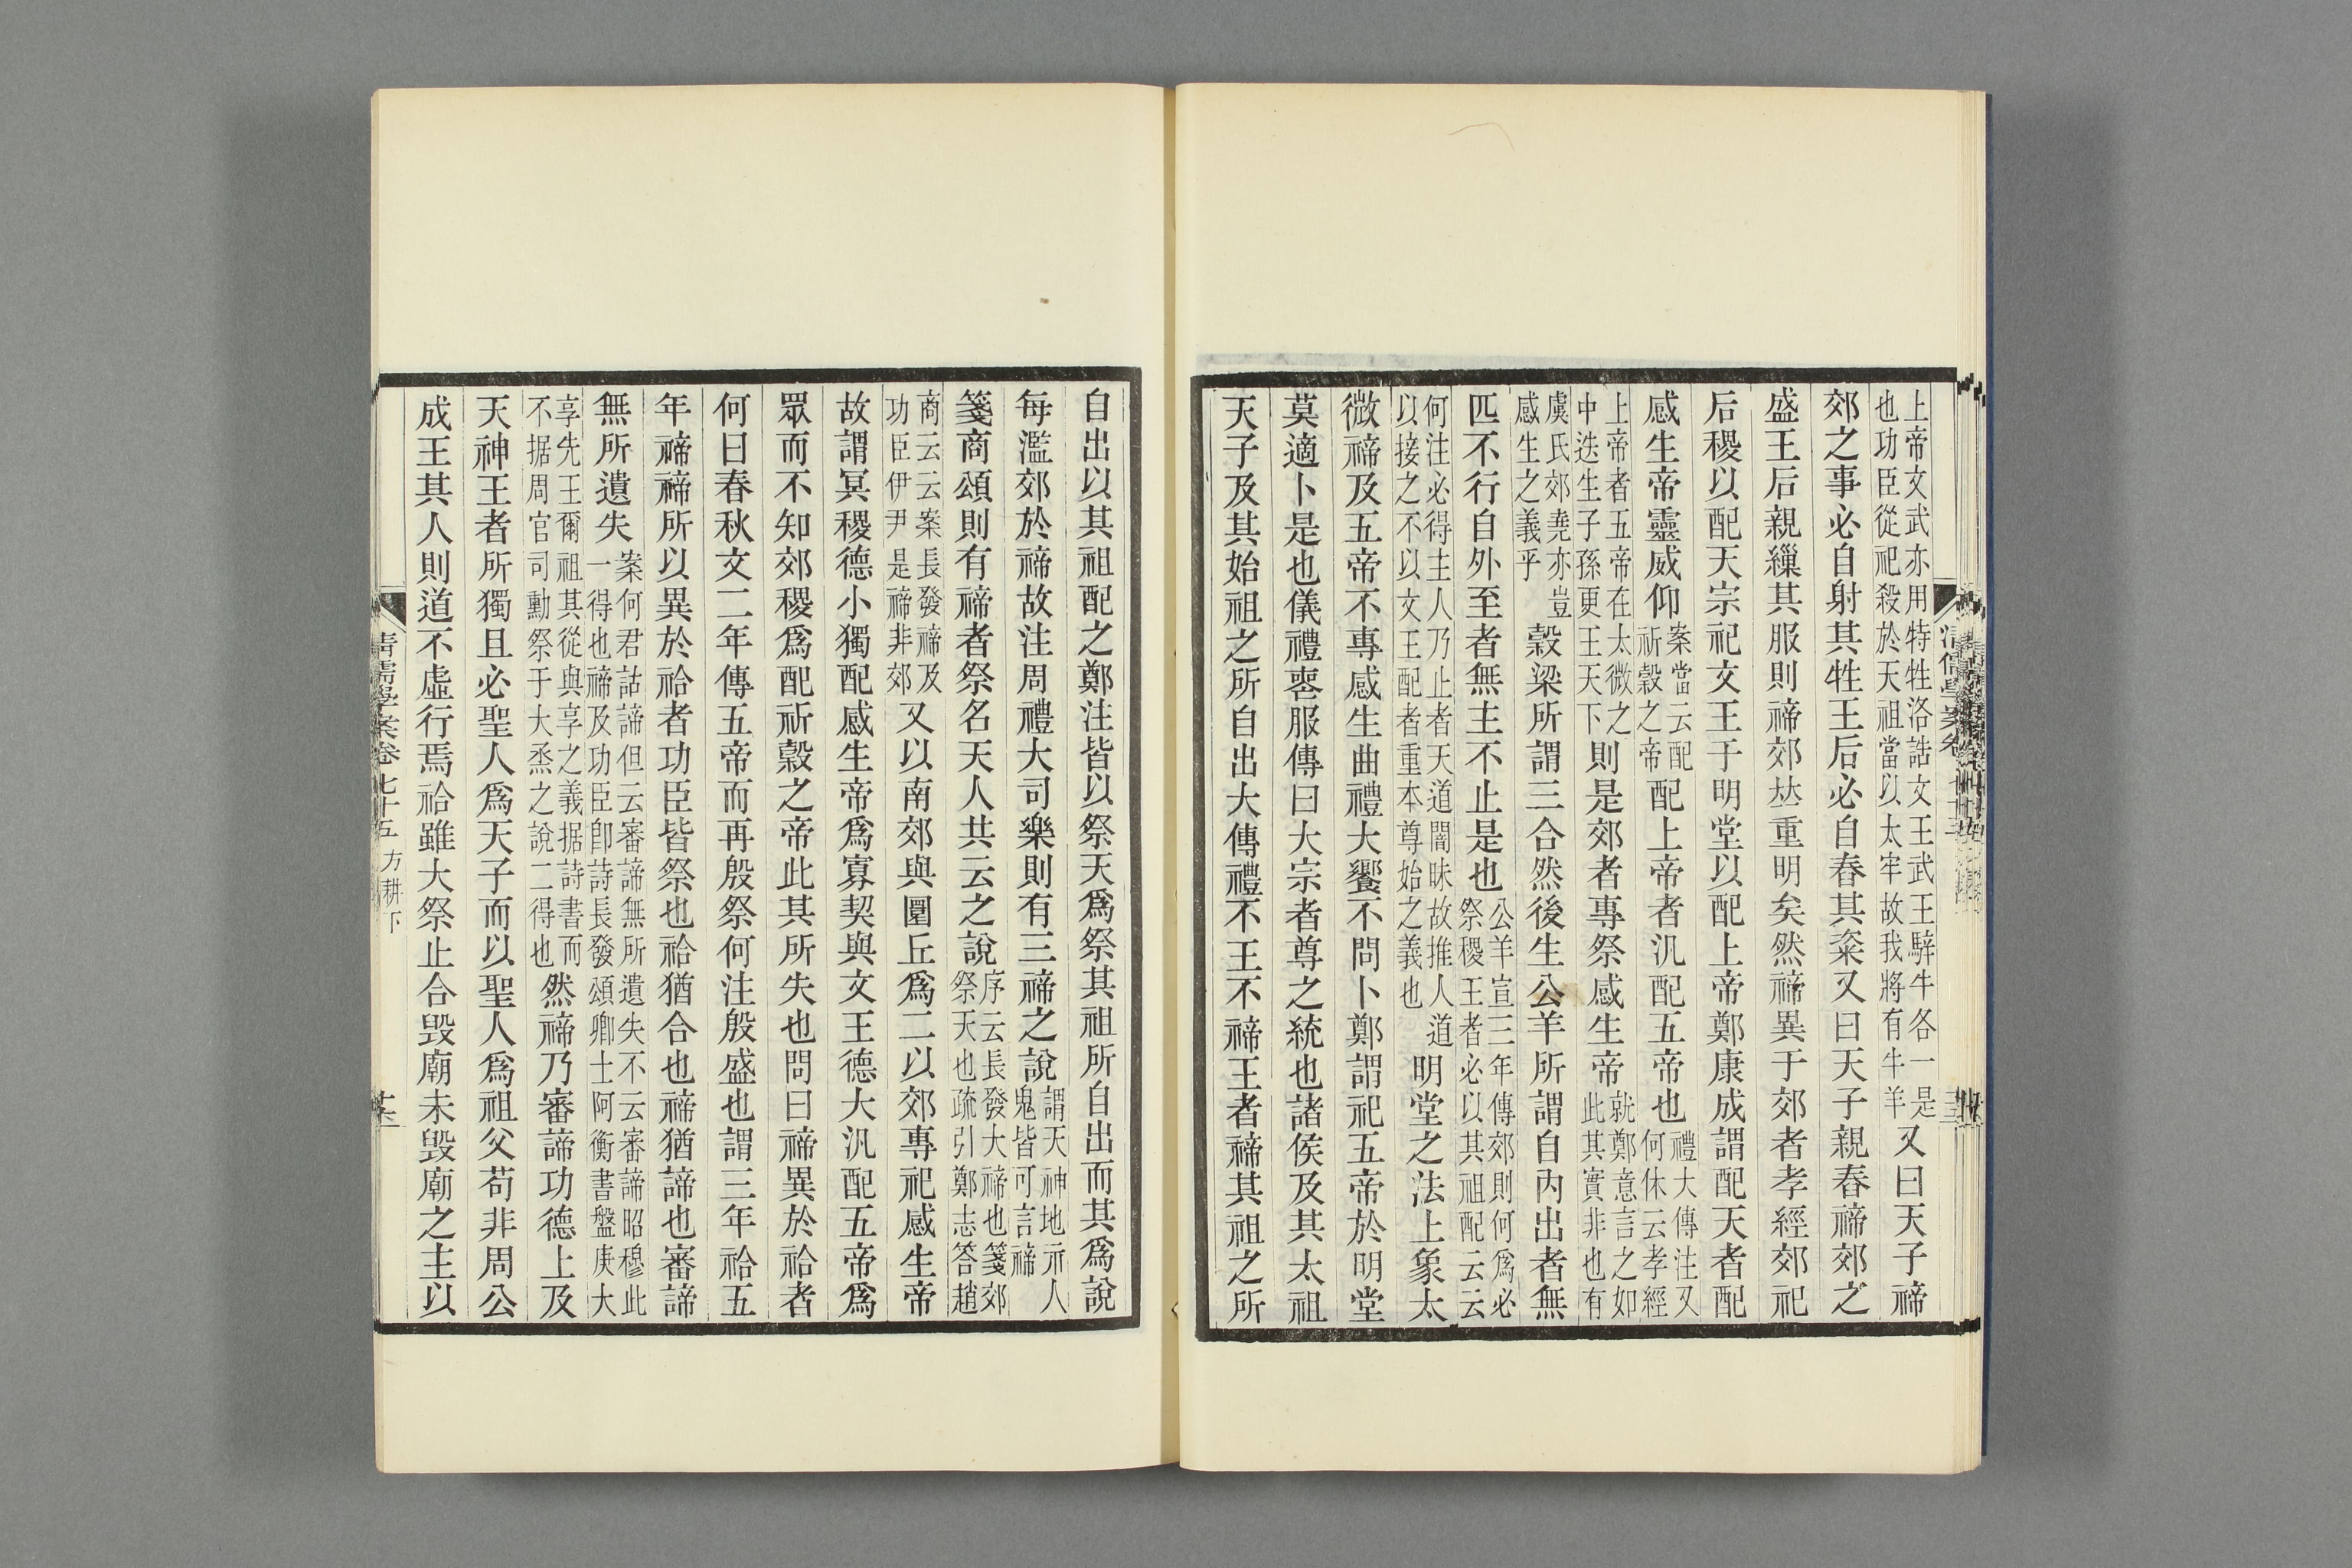 上帝文武亦用特牲洛誥文王武王騂牛各一是
也功臣從祀殺於天祖當以太牢故我將有牛羊
又曰天子禘
郊之事必自射其牲王后必自舂其粢又曰天子親舂禘郊之
盛王后親繅其服則禘郊𠀤重明矣然禘異于郊者孝經郊祀
后稷以配天宗祀文王于明堂以配上帝鄭康成謂配天者配
感生帝靈威仰
案當云配
祈穀之帝
配上帝者汎配五帝也
禮大傳注又
何休云孝經
上帝者五帝在太微之
中迭生子孫更王天下
則是郊者專祭感生帝
就鄭意言之如
此其實非也有
虞氏郊堯亦豈
感生之義乎
穀梁所謂三合然後生公羊所謂自內出者無
匹不行自外至者無主不止是也
公羊宣三年傳郊則何爲必
祭稷王者必以其祖配云云
何注必得主人乃止者天道闇昧故推人道
以接之不以文王配者重本尊始之義也
明堂之法上象太
微禘及五帝不專感生曲禮大饗不問卜鄭謂祀五帝於明堂
莫適卜是也儀禮喪服傳曰大宗者尊之統也諸侯及其太祖
天子及其始祖之所自出大傳禮不王不禘王者禘其祖之所
自出以其祖配之鄭注皆以祭天爲祭其祖所自出而其爲說
每濫郊於禘故注周禮大司樂則有三禘之說
謂天神地示人
鬼皆可言禘
箋商頌則有禘者祭名天人共云之說
序云長發大禘也箋郊
祭天也疏引鄭志答趙
商云云案長發禘及
功臣伊尹是禘非郊
又以南郊與圜丘爲二以郊專祀感生帝
故謂冥稷德小獨配感生帝爲寡契與文王德大汎配五帝爲
眾而不知郊稷爲配祈穀之帝此其所失也問曰禘異於祫者
何曰春秋文二年傳五帝而再殷祭何注殷盛也謂三年祫五
年禘禘所以異於祫者功臣皆祭也祫猶合也禘猶諦也審諦
無所遺失
案何君詁諦但云審諦無所遺失不云審諦昭穆此
一得也禘及功臣卽詩長發頌卿士阿衡書盤庚大
享先王爾祖其從與享之義据詩書而
不据周官司勳祭于大烝之說二得也
然禘乃審諦功德上及
天神王者所獨且必聖人爲天子而以聖人爲祖父苟非周公
成王其人則道不虛行焉祫雖大祭止合毀廟未毀廟之主以
清儒學案卷七十五 方耕下